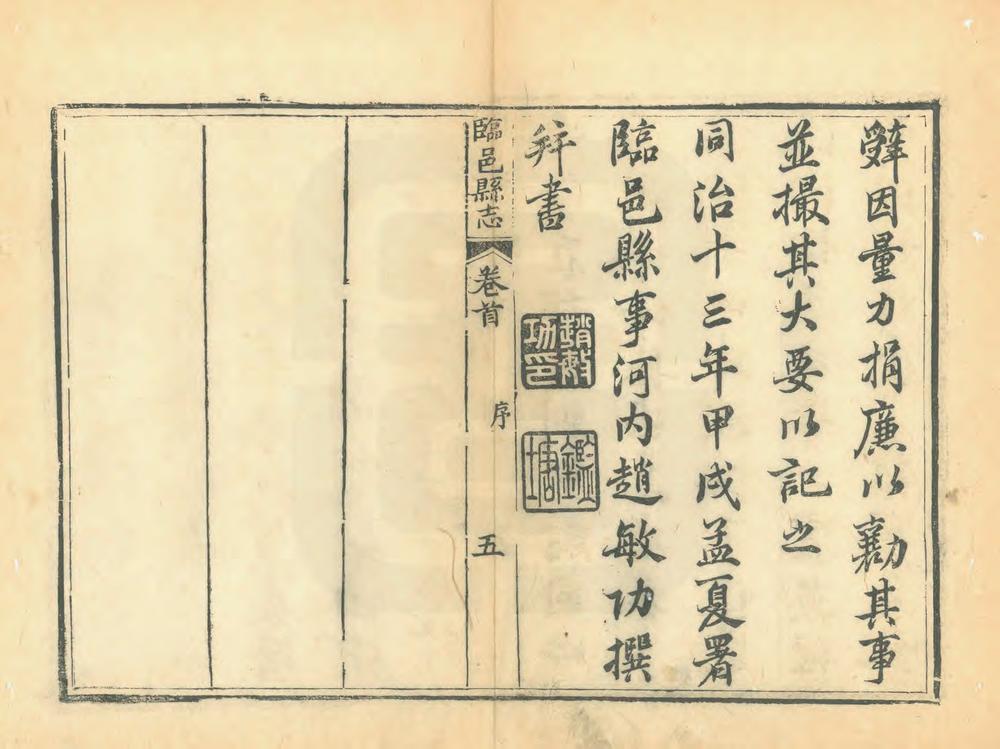 辤因量力捐廉以勷其事
並撮其大要以記之
同治十三年甲戌孟夏署
臨邑縣事河内趙敏功撰
并書
趙敏
功印
鑑
塘
臨邑縣志 卷首 序 五